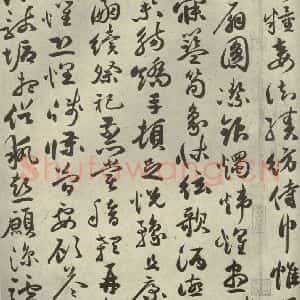 糧妾御績紡侍巾帷
扇圓潔銀燭煒煌晝
寐藍筍象床弦歌酒讌
舉觴矯手頓足悅豫且康
嗣續祭祀烝嘗稽顙再
懼恐惶牋牒簡要顧答
骸垢想浴執熱願涼驢
Shufawang.cn